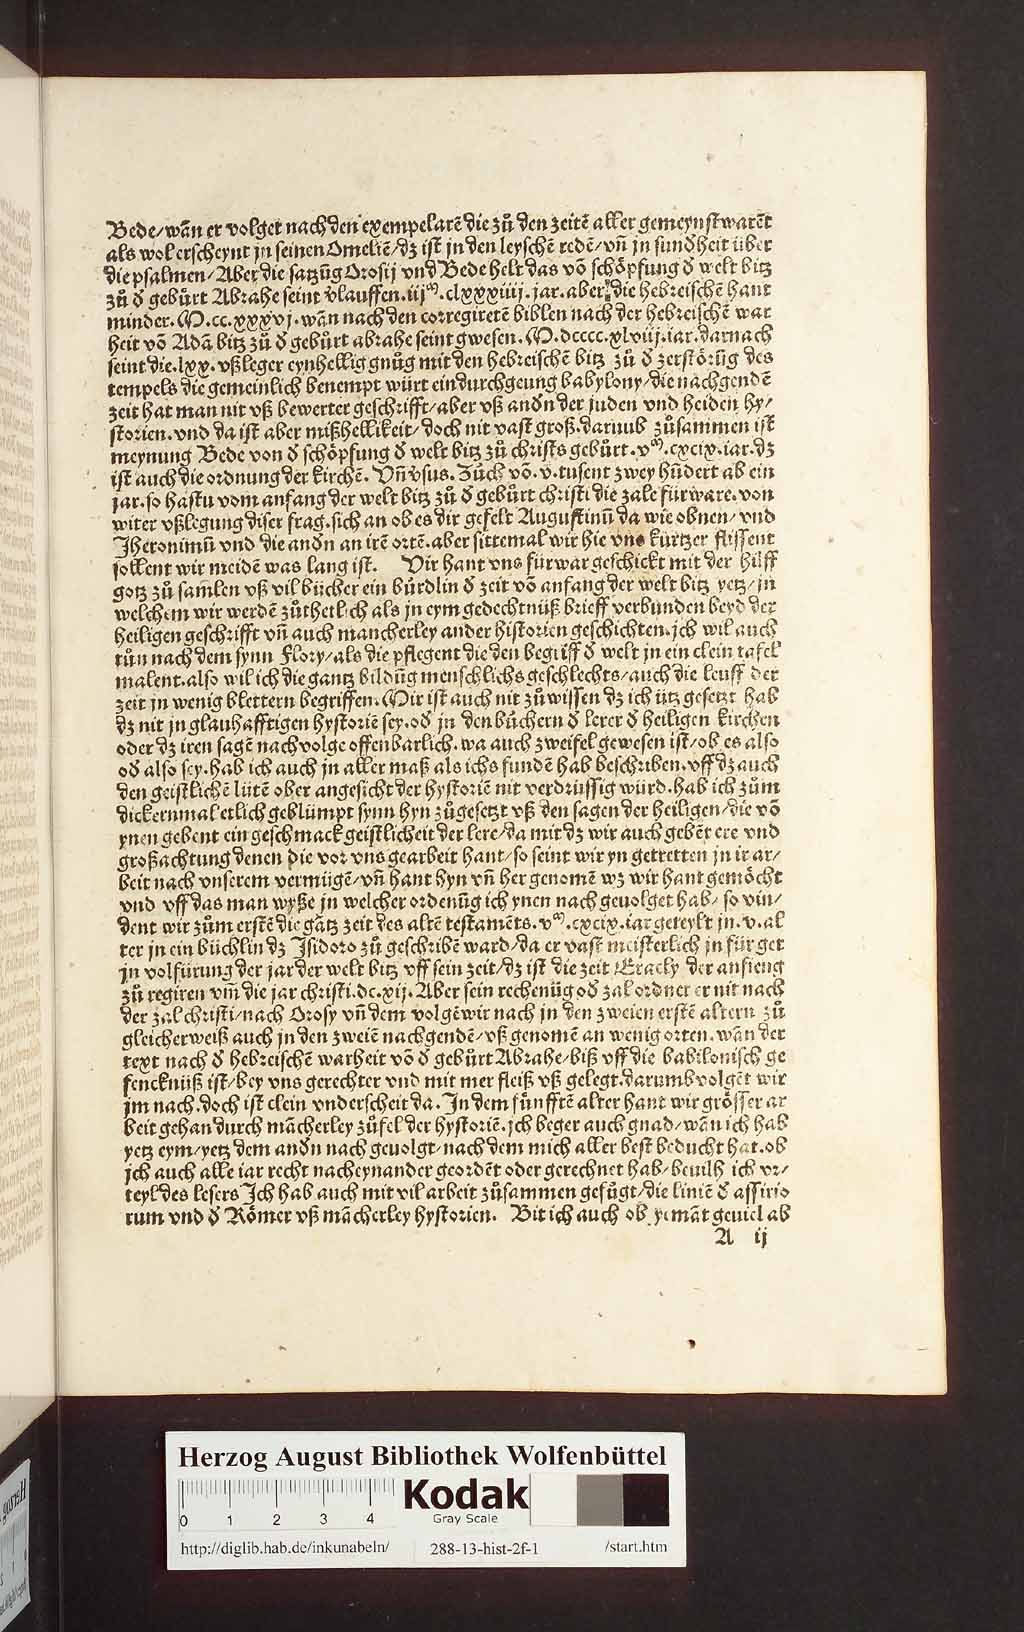 Bede/wañ er volget nach den exempelarẽ die zů den zeitẽ aller gemeynst warẽt
als wol erscheynt jn seinen Omeliẽ/dz ist jn den leyschẽ redẽ/vñ jn sunđheit über
die psalmen/Aber die satzũg Orosij vnd Bede helt das võ schöpfung đ welt bitz
zů đ gebůrt Abrahe seint v̾lauffen.iijᵐ.clxxxiiij.jar.aber die hebreischẽ hant
minder.M.cc.xxxvj.wãn nach den corregiretẽ biblen nach der hebreischẽ war
heit võ Adã bitz zů đ gebůrt abrahe seint gwesen.M.dcccc.xlviij.iar.darnach
seint die.lxx.vßleger eynhellig gnůg mit den hebreischẽ bitz zů đ zerstörũg des
tempels die gemeinlich benempt würt ein durchgeung babylony/die nachgendẽ
zeit hat man nit vß bewerter geschrifft/aber vß anđn der juden vnd heiden hy/
storien.vnd da ist aber mißhellikeit/doch nit vast groß.daruub zůsammen ist
meynung Bede von đ schöpfung đ welt bitz zů christs gebůrt.vᵐ.cxcix.iar.dz
ist auch die ordnung der kirchẽ. Vñ v̾sus. Züch võ.v.tusent zwey hũdert ab ein
jar.so hastu vom anfang der welt bitz zů đ gebůrt christi die zale fürware.von
witer vßlegung diser frag.sich an ob es dir gefelt Augustinũ da wie obnen/vnd
Jheronimũ vnd die anđn an irẽ ortẽ.aber sittemal wir hie vns kürtzer flissent
sollent wir meidẽ was lang ist. Wir hant vns fürwar geschickt mit der hilff
gotz zů samlen vß vil bücher ein bürdlin đ zeit võ anfang der welt bitz yetz/jn
welchem wir werdẽ zůthetlich als jn eym gedechtnüß brieff verbunden beyd der
heiligen geschrifft vñ auch mancherley ander historien geschichten.jch wil auch
tůn nach dem synn Flory/als die pflegent die den begriff đ welt jn ein clein tafel
malent.also wil ich die gantz bildũg menschlichs geschlechts/auch die leuff der
zeit jn wenig blettern begriffen.Mir ist auch nit zůwissen dz ich ütz gesetzt hab
dz nit jn glauhafftigen hystoriẽ sey.ođ jn den büchern đ lerer đ heiligen kirchen
oder dz iren sagẽ nachvolge offenbarlich.wa auch zweifel gewesen ist/ob es also
ođ also sey.hab ich auch jn aller maß als ichs fundẽ hab beschriben.vff dz auch
den geistlichẽ lütẽ ober angesicht der hystoriẽ nit verdrussig würd.hab ich zům
dickernmal etlich geblümpt synn hyn zůgesetzt vß den sagen der heiligen/die võ
ynen gebent ein geschmack geistlicheit der lere/da mit dz wir auch gebẽt ere vnd
großachtung denen die vor vns gearbeit hant/so seint wir yn getretten jn ir ar/
beit nach vnserem vermügẽ/vñ hant hyn vñ her genomẽ wz wir hant gemöcht
vnd vff das man wyße jn welcher ordenũg ich ynen nach geuolget hab/so vin/
dent wir zům erstẽ die gãtz zeit des altẽ testamẽts.vᵐ.cxcix.iar geteylt jn.v.al
ter jn ein büchlin dz Isidoro zů geschribẽ ward/da er vast meisterlich jn für get
jn volfürung der jar der welt bitz vff sein zeit/dz ist die zeit Eracly der anfieng
zů regiren vm̃ die jar christi.dc.xij.Aber sein rechenũg ođ zal ordnet er nit nach
der zal christi/nach Orosy vñ dem volgẽ wir nach jn den zweien erstẽ altern zů
gleicherweiß auch jn den zweiẽ nachgendẽ/vß genomẽ an wenig orten.wãn der
text nach đ hebreischẽ warheit võ đ gebůrt Abrahe/biß vff die babilonisch ge
fencknüß ist/bey vns gerechter vnd mit mer fleiß vß gelegt.darumb volgẽt wir
jm nach.doch ist clein vnderscheit da. Jn dem fünfftẽ alter hant wir grösser ar
beit gehan durch mãcherley zůfel der hystoriẽ.jch beger auch gnad/wãn ich hab
yetz eym/yetz dem anđn nach geuolgt/nach dem mich aller best beducht hat.ob
jch auch alle iar recht nacheynander geordẽt oder gerechnet hab/beuilh ich vr/
teyl des lesers Jch hab auch mit vil arbeit zůsammen gefůgt/die liniẽ đ assirio
rum vnd đ Römer vß mãcherley hystorien. Bit ich auch ob yemãt geuiel ab
A ij
Herzog August Bibliothek Wolfenbüttel
0 1 2 3 4
Kodak
Gray Scale
http://diglib.hab.de/inkunabeln/ 288-13-hist-2f-1 /start.htm